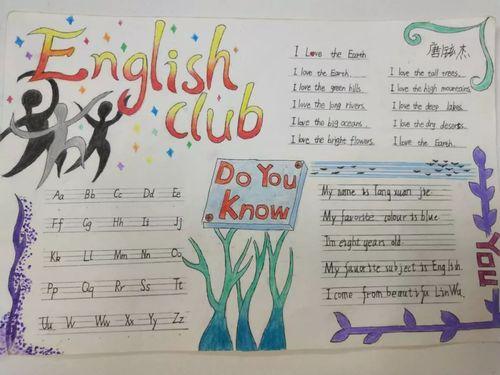 English
club
I Love the Earth
I love the Earth.
I love the green hills.
I love the long rivers.
I love the big oceans.
I love the bright flowers.
I love the tall trees.
I love the high mountains.
I love the deep lakes.
I love the dry deserts.
I love the Earth.
Aa Bb Cc Dd Ee
Ff Gg Hh Ii Jj
Kk Ll Mm Nn Oo
Pp Qq Rr Ss Tt
Uu Vv Ww Xx Yy Zz
Do You
Know
My name is Tang xuan jie
My favorite colour is blue
I'm eight years old.
My favorite subject is English.
I come from beautifu LinWu.
You